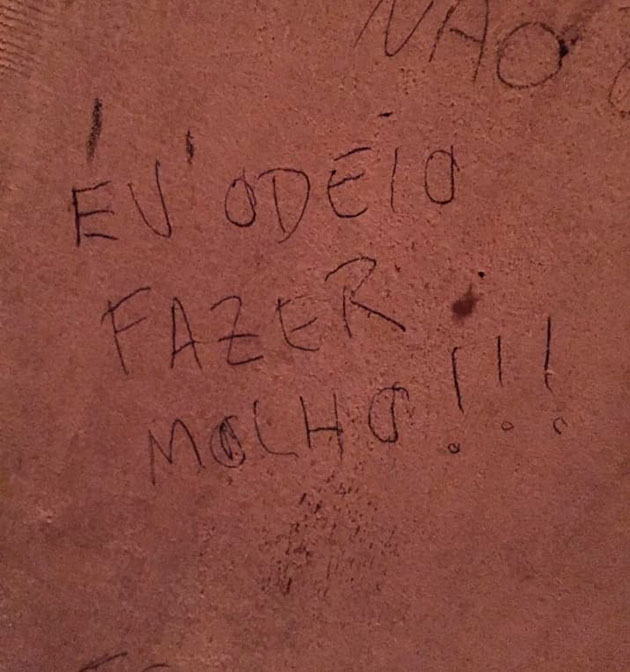 NÃO
EU ODEIO
FAZER
MOLHO!!!